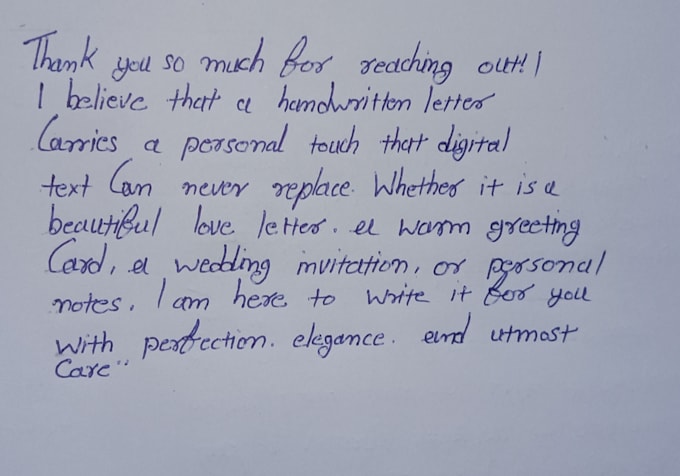 Thank you so much for reaching out! |
I believe that a handwritten letter
Carries a personal touch that digital
text Can never replace. Whether it is a
beautiful love letter. a warm greeting
Card, a wedding invitation, or personal
notes. I am here to write it for you
with perfection. elegance. and utmost
Care"